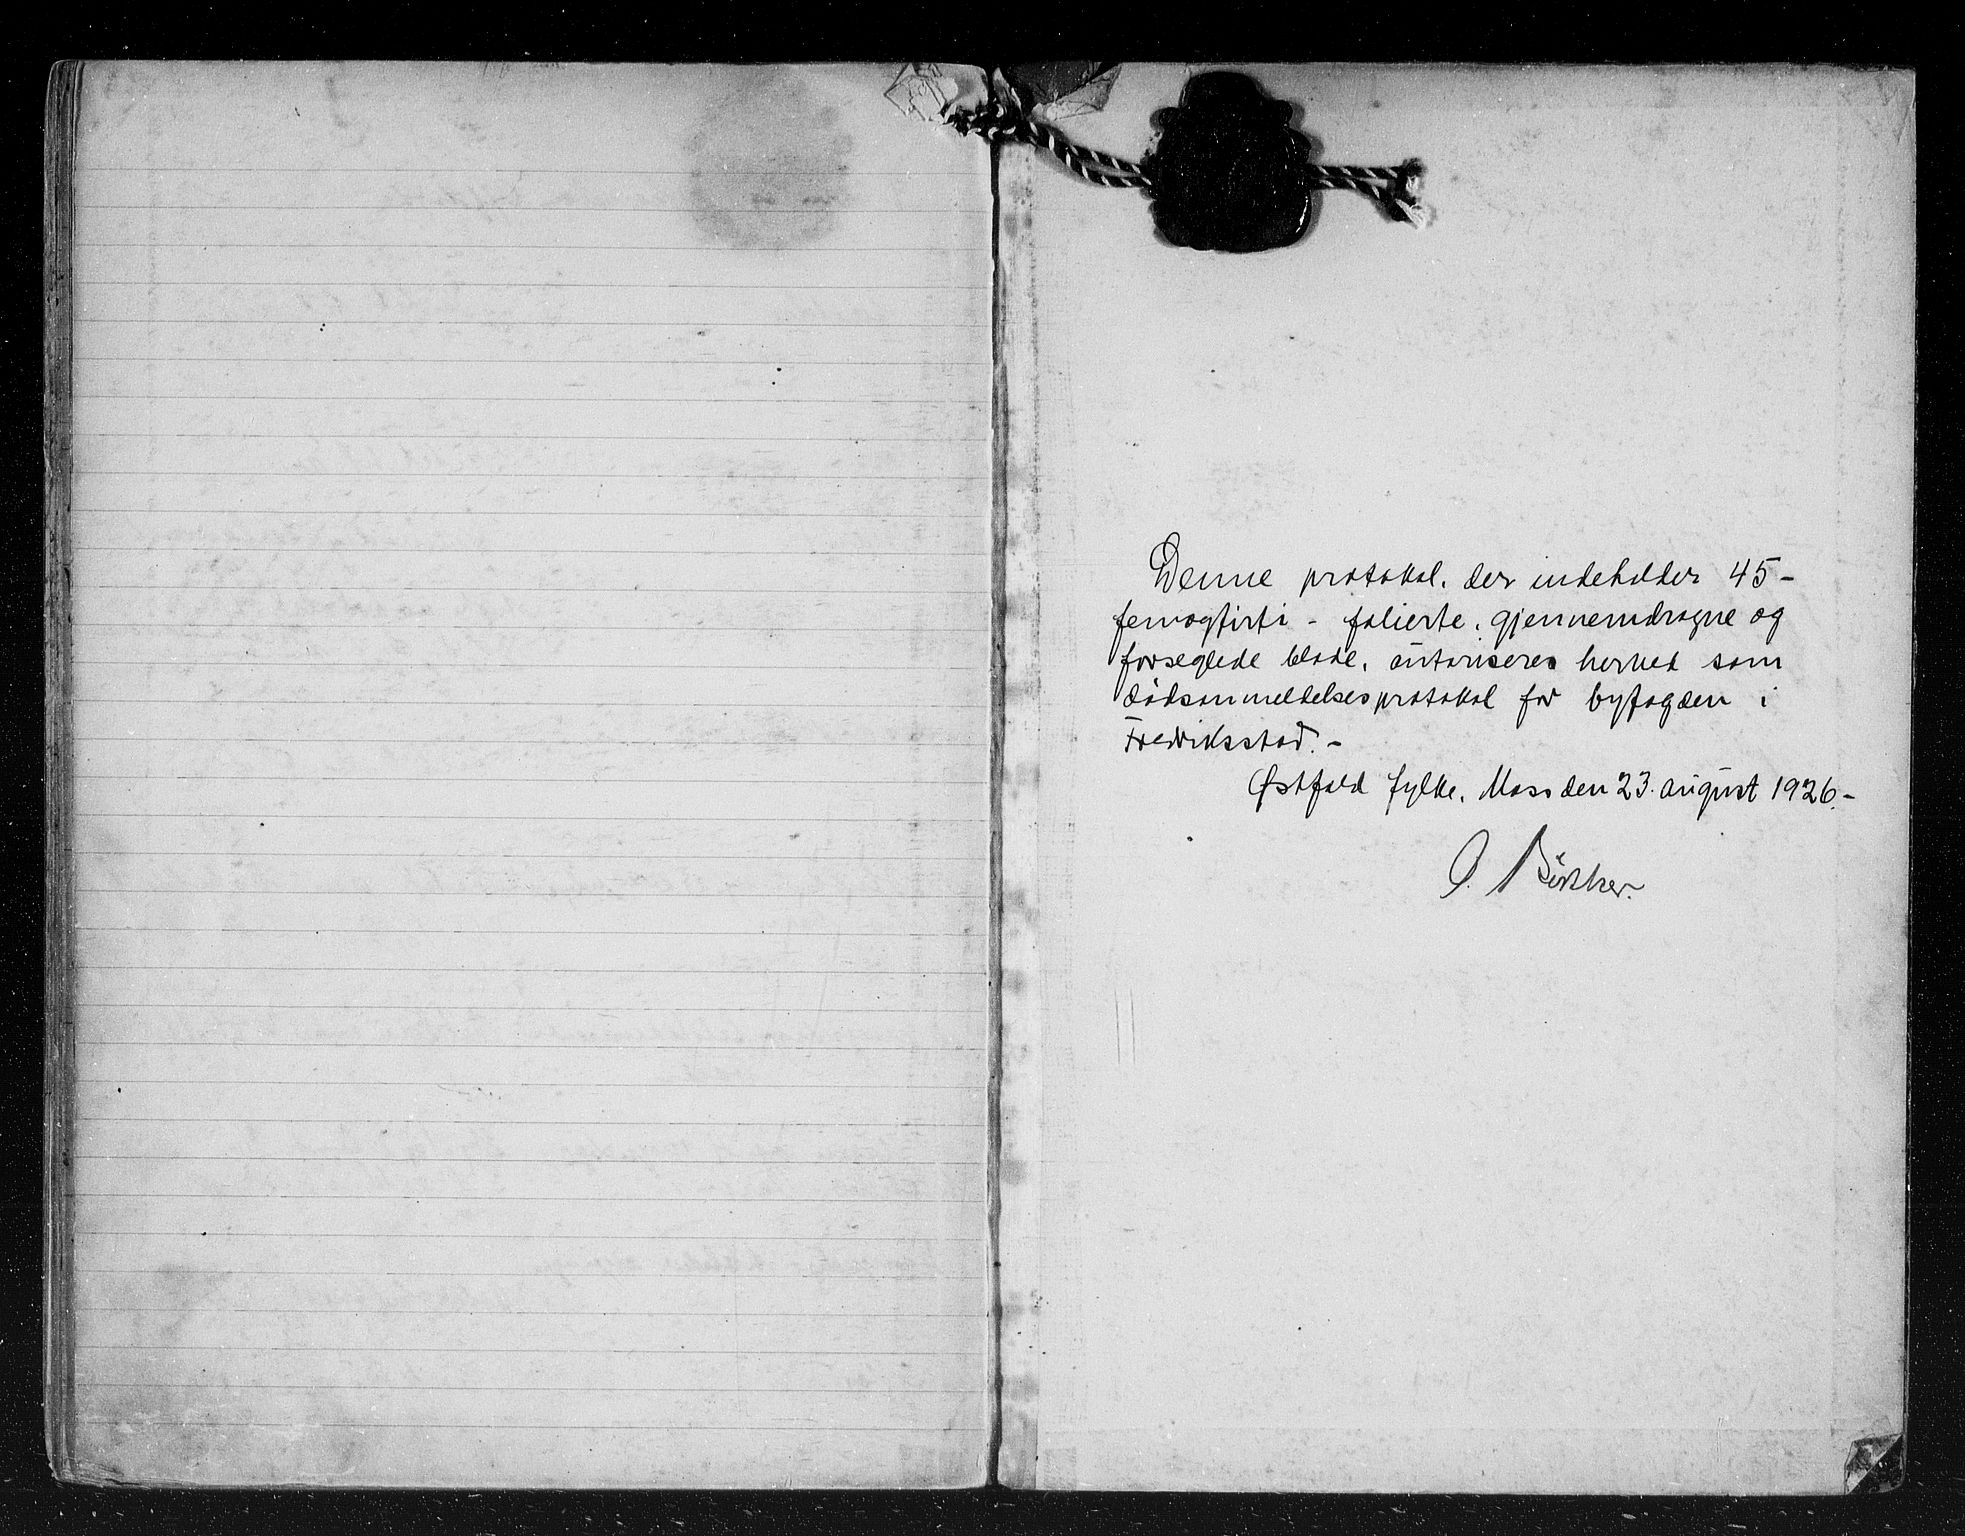 Denne protokol, der indeholder 45 -
femogfirti - folierte, gjennemdragne og
forseglede blade, autoriseres herved som
dødsanmeldelsesprotokol for byfogden i
Fredriksstad. -
Østfold fylke, Moss den 23. august 1926. -